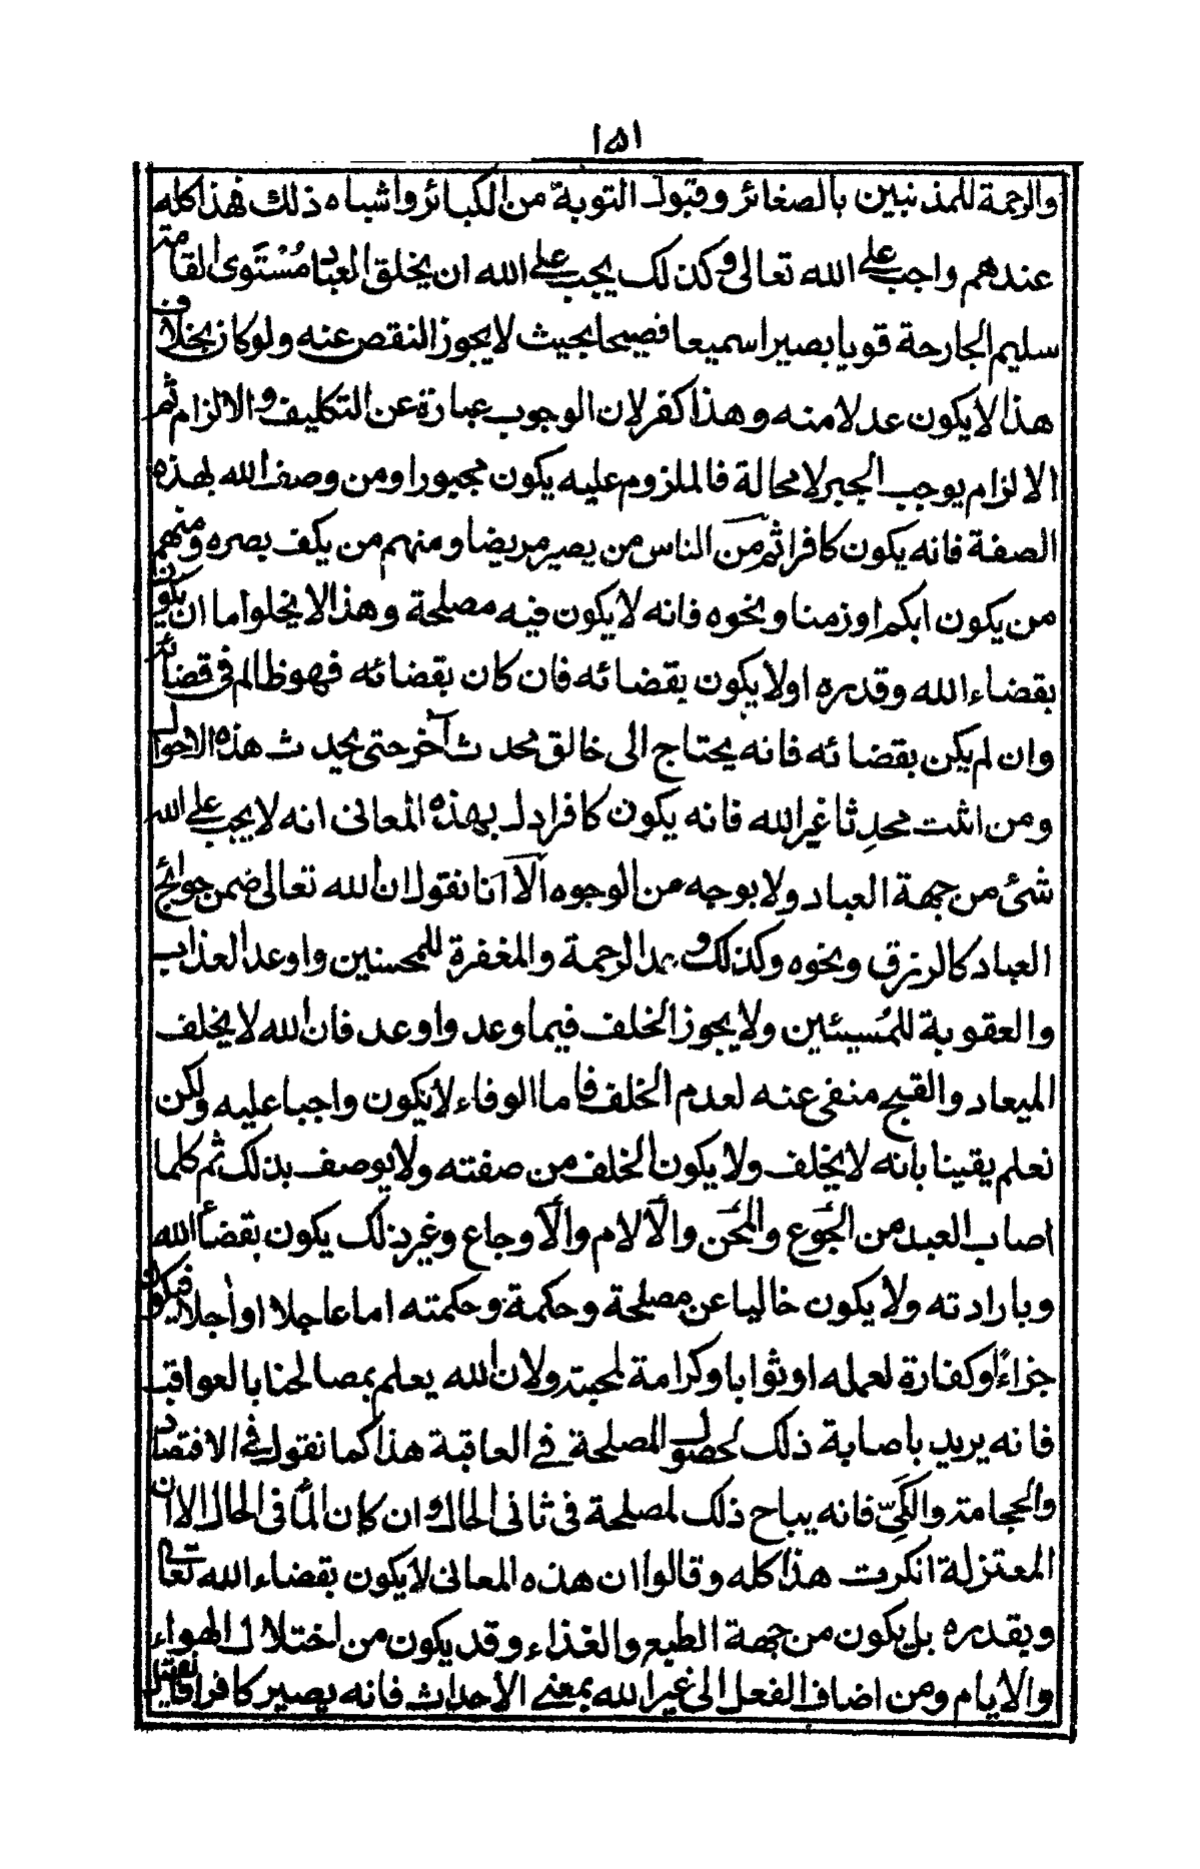 ١٥١
والرحمة للمذنبين بالصغائر وقبول التوبة من الكبائر واشباه ذلك فهذا كله
عندهم واجب على الله تعالى وكذلك يجب على الله ان يخلق العباد مُسْتَوى القامة
سليم الجارحة قويا بصيرا سميعا فصيحا بحيث لا يجوز النقص عنه ولو كان بخلاف
هذا لا يكون عدلا منه وهذا كفر لان الوجوب عبارة عن التكليف والالزام ثم
الالزام يوجب الجبر لا محالة فالملزوم عليه يكون مجبورا ومن وصف الله بهذه
الصفة فانه يكون كافرا ثم من الناس من يصير مريضا ومنهم من يكف بصره ومنهم
من يكون ابكم او زمنا ونحوه فانه لا يكون فيه مصلحة وهذا لا يخلوا اما ان يكون
بقضاء الله وقدره اولا يكون بقضائه فان كان بقضائه فهو ظالم فى قضائه
وان لم يكن بقضائه فانه يحتاج الى خالق محدث آخر حتى يحدث هذه الاحوال
ومن اثبت محدِثا غير الله فانه يكون كافرا دل بهذه المعانى انه لا يجب على الله
شئ من جهة العباد ولا بوجه من الوجوه الّا انا نقول ان الله تعالى ضمن حوائج
العباد كالرزق ونحوه وكذلك وعد الرحمة والمغفرة للمحسنين واوعد العذاب
والعقوبة للمُسيئين ولا يجوز الخلف فيما وعد واوعد فان الله لا يخلف
الميعاد والقبح منفى عنه لعدم الخلف فاما الوفاء لا يكون واجبا عليه ولكن
نعلم يقينا بانه لا يخلف ولا يكون الخلف من صفته ولا يوصف بذلك ثم كلما
اصاب العبد من الجوع والمحن والآلام والاوجاع وغير ذلك يكون بقضاء الله
وبارادته ولا يكون خاليا عن مصلحة وحكمة وحكمته اما عاجلا او اجلا فيكون
جزاءً او كفارة لعمله او ثوابا وكرامة لمحبته ولان الله يعلم بمصالحنا بالعواقب
فانه يريد باصابة ذلك لحصول المصلحة فى العاقبة هذا كما نقول فى الافتصاد
والحجامة والكَىّ فانه يباح ذلك لمصلحة فى ثانى الحال وان كان المًا فى الحال الا ان
المعتزلة انكرت هذا كله وقالوا ان هذه المعانى لا يكون بقضاء الله تعالى
وبقدره بل يكون من جهة الطبع والغذاء وقد يكون من اختلال الهواء
والايام ومن اضاف الفعل الى غير الله بمعنى الاحداث فانه يصير كافرا